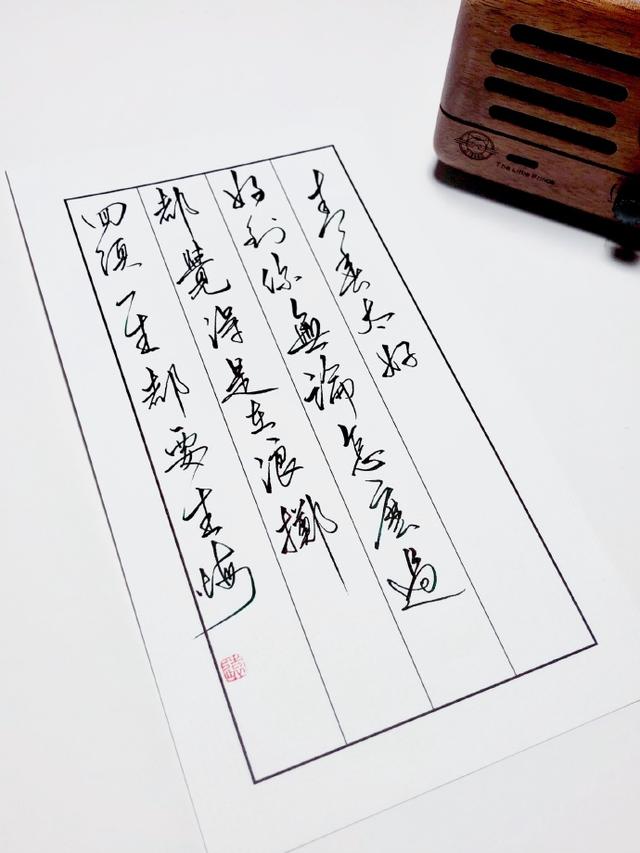 青春太好
好到你無論怎麼過
都覺得是在浪擲
回頭一看都要生悔
The Little Prince